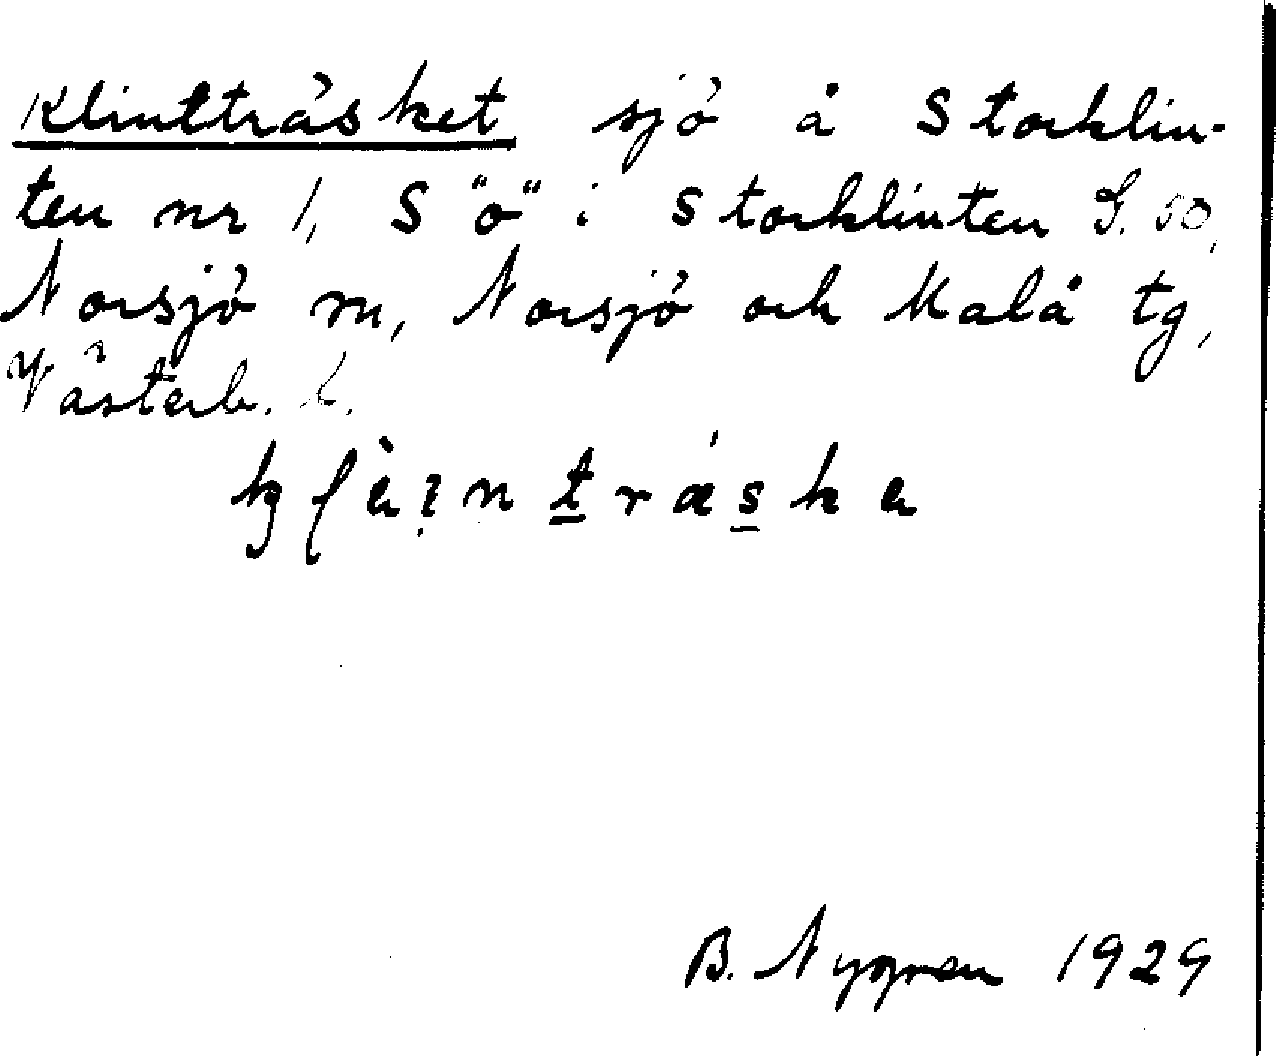 Klintträsket sjö å Storklin-
ten nr 1, S "o" i Storklinten S. 50,
Norsjö sn, Norsjö och Malå tg,
Västerb. l.
B. Nygren 1929